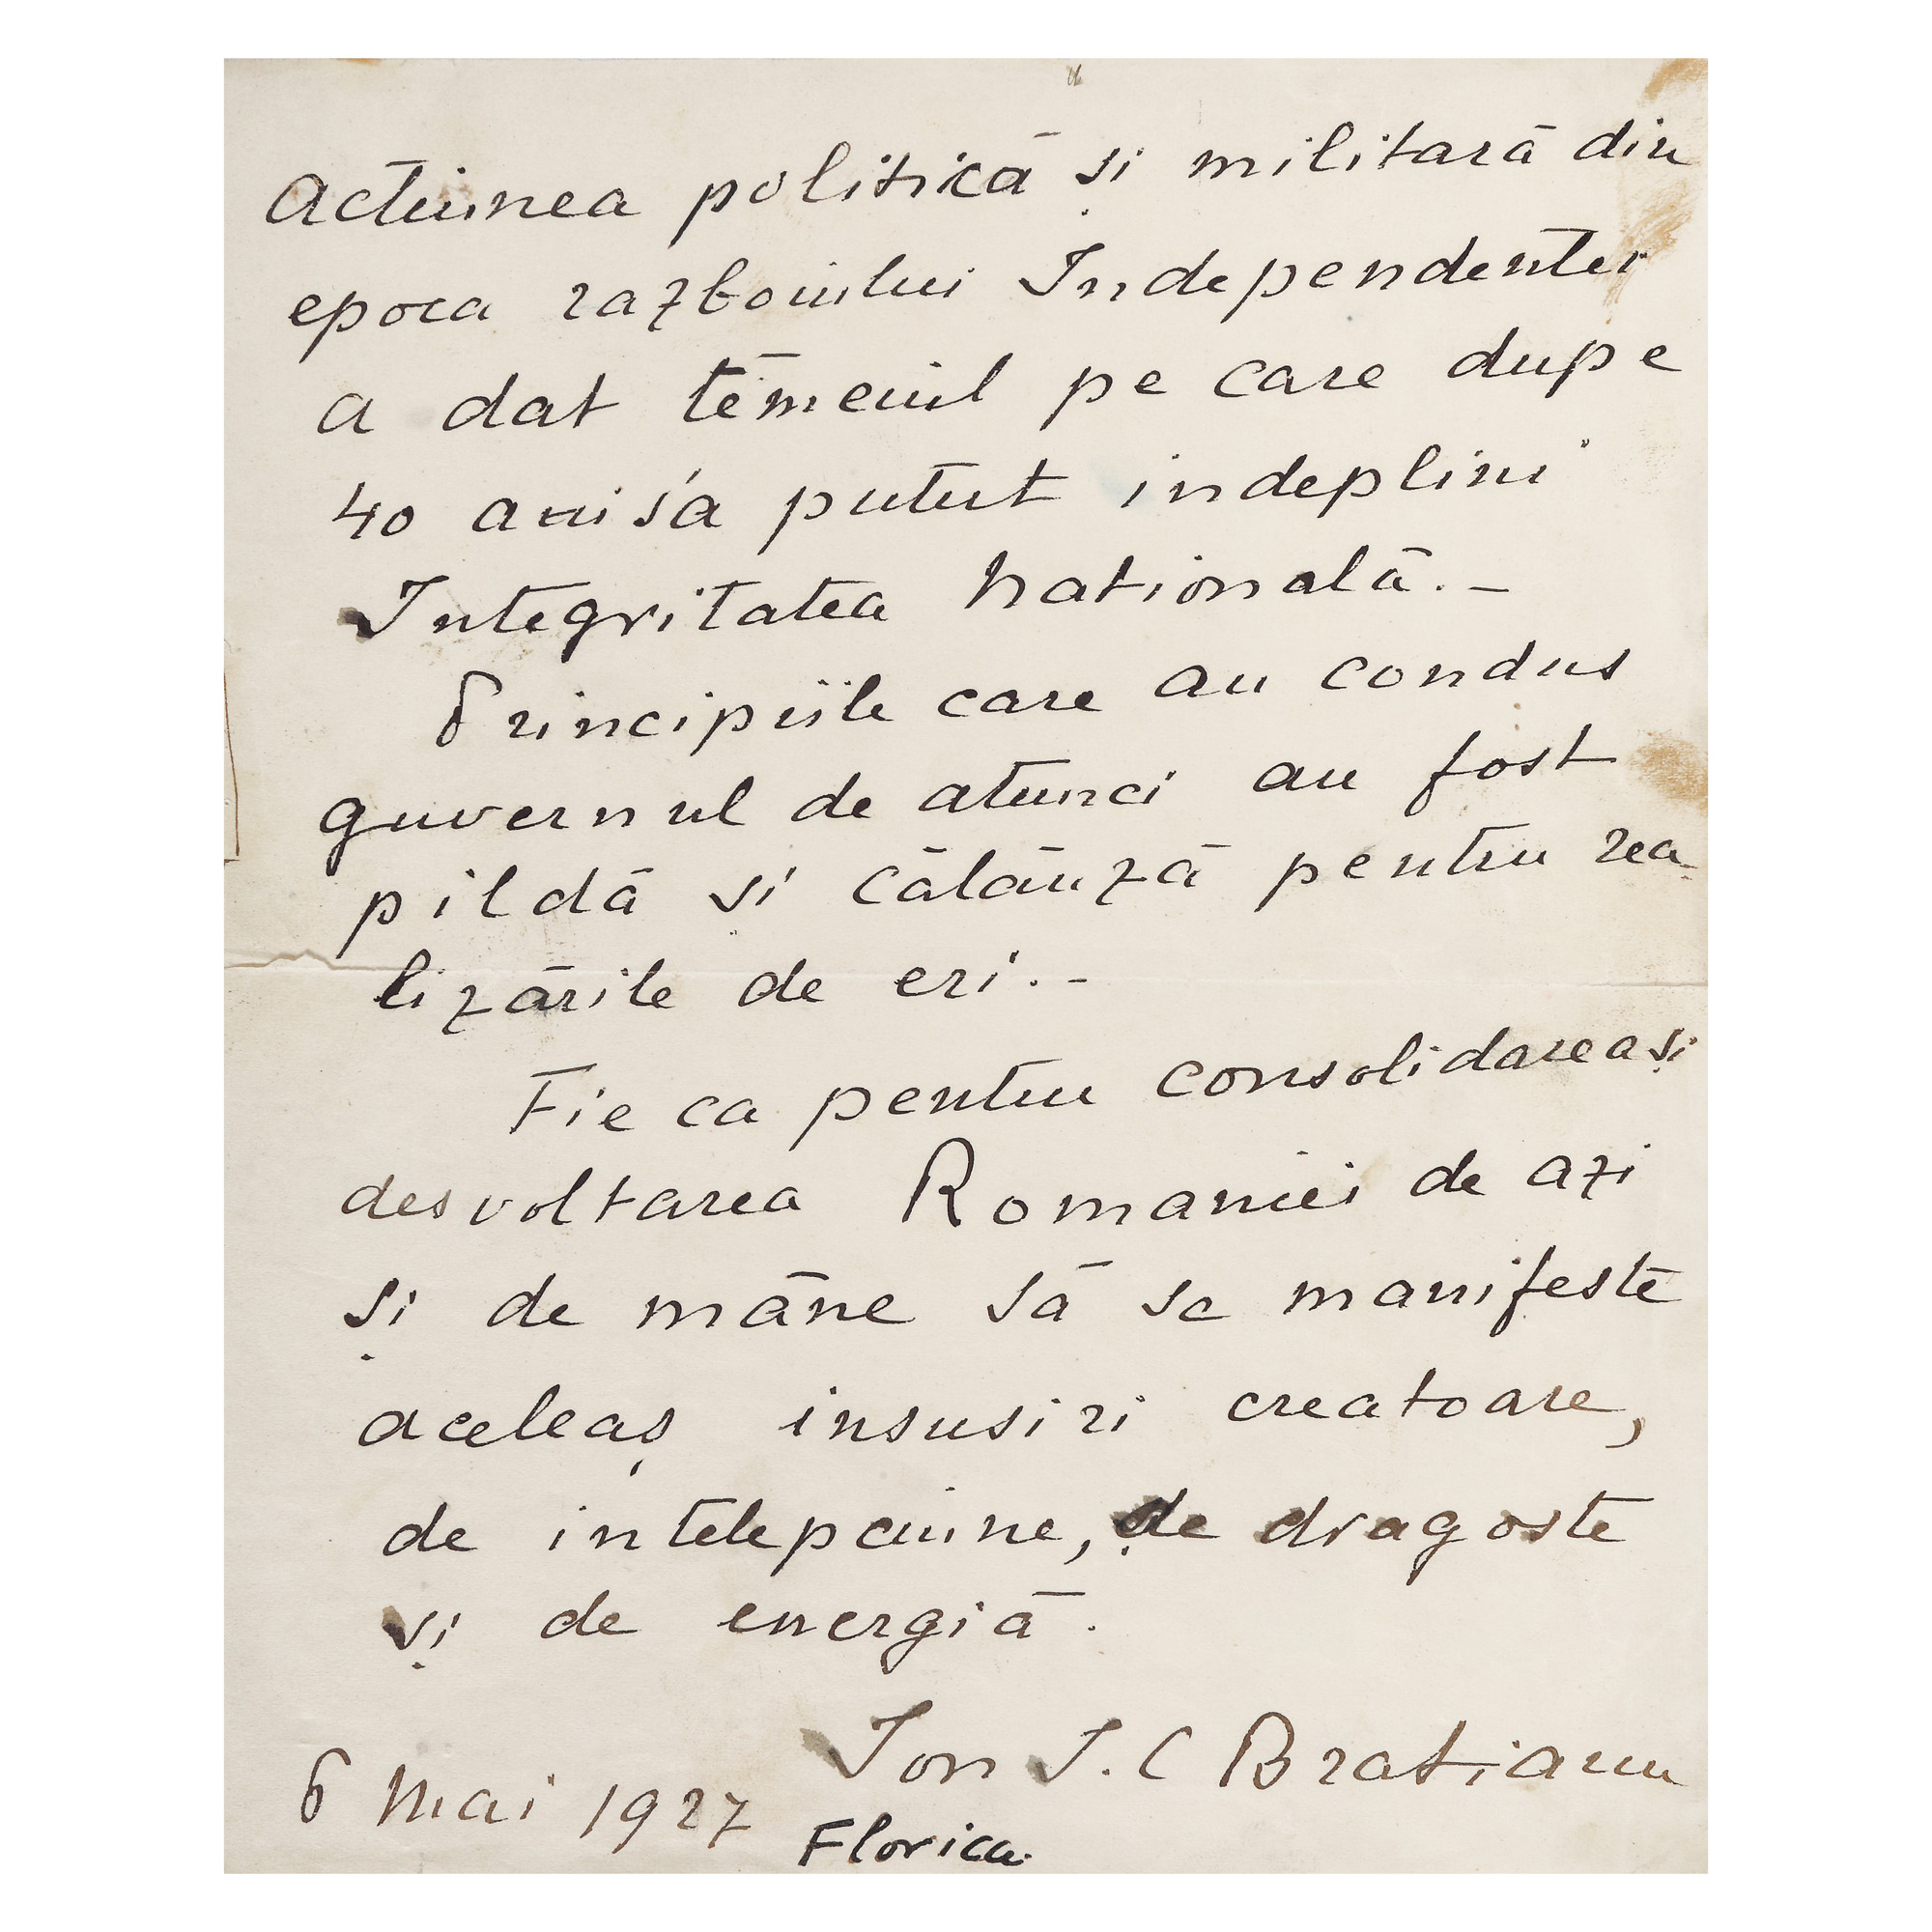 Actiunea politică și militară din
epoca razboiului Independentei
a dat temeiul pe care dupe
40 ani s'a putut indeplini
Integritatea Natională.-
Principiile care au condus
guvernul de atunci au fost
pildă și călăuză pentru rea-
lizările de eri.-
Fie ca pentru consolidarea și
desvoltarea Romaniei de azi
și de mâne să se manifeste
aceleaș insusiri creatoare,
de intelepciune, de dragoste
și de energiă.
Ion I.C Bratianu
6 Mai 1927
Florica